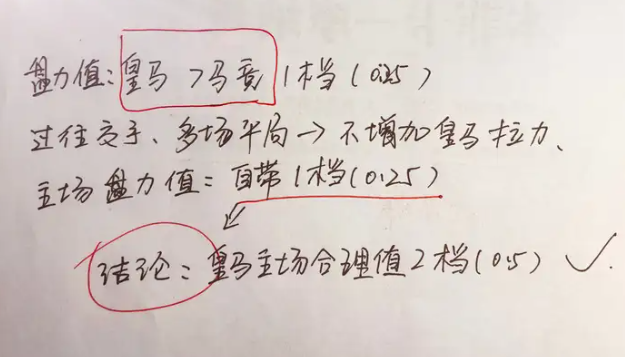 盘力值：皇马>马竞 1档（0.25）
过往交手、多场平局→不增加皇马拉力、
主场盘力值：自带1档(0.25)
结论：皇马主场合理值2档(0.5) ✓.